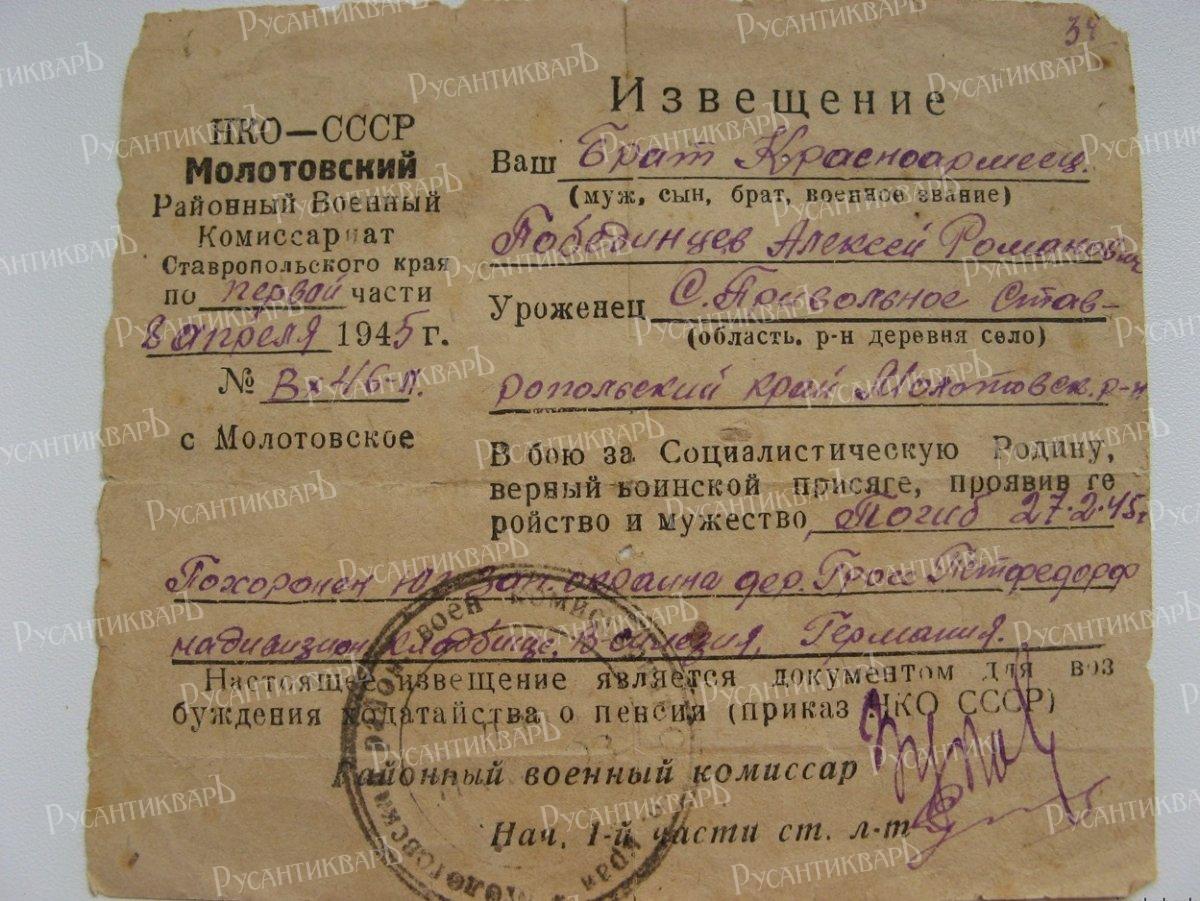 34
НКО—СССР
Молотовский
Районный Военный
Комиссариат
Ставропольского края
по первой части
8 апреля 1945 г.
№ Вх 46-л.
с Молотовское
Извещение
Ваш Брат Красноармеец.
(муж, сын, брат, военное звание)
Побединцев Алексей Романович
Уроженец С. Привольное Став-
(область, р-н деревня село)
ропольский край Молотовск. р-н
В бою за Социалистическую Родину,
верный воинской присяге, проявив ге
ройство и мужество, Погиб 27.2.45г
Похоронен юг. зап. окраина дер. Гросс Петфедорф
на дивизион. кладбище, В. Силезия, Германия.
Настоящее извещение является документом для воз
буждения ходатайства о пенсии (приказ НКО СССР)
Районный военный комиссар
Нач. 1-й части ст. л-т
РусантикварЪ